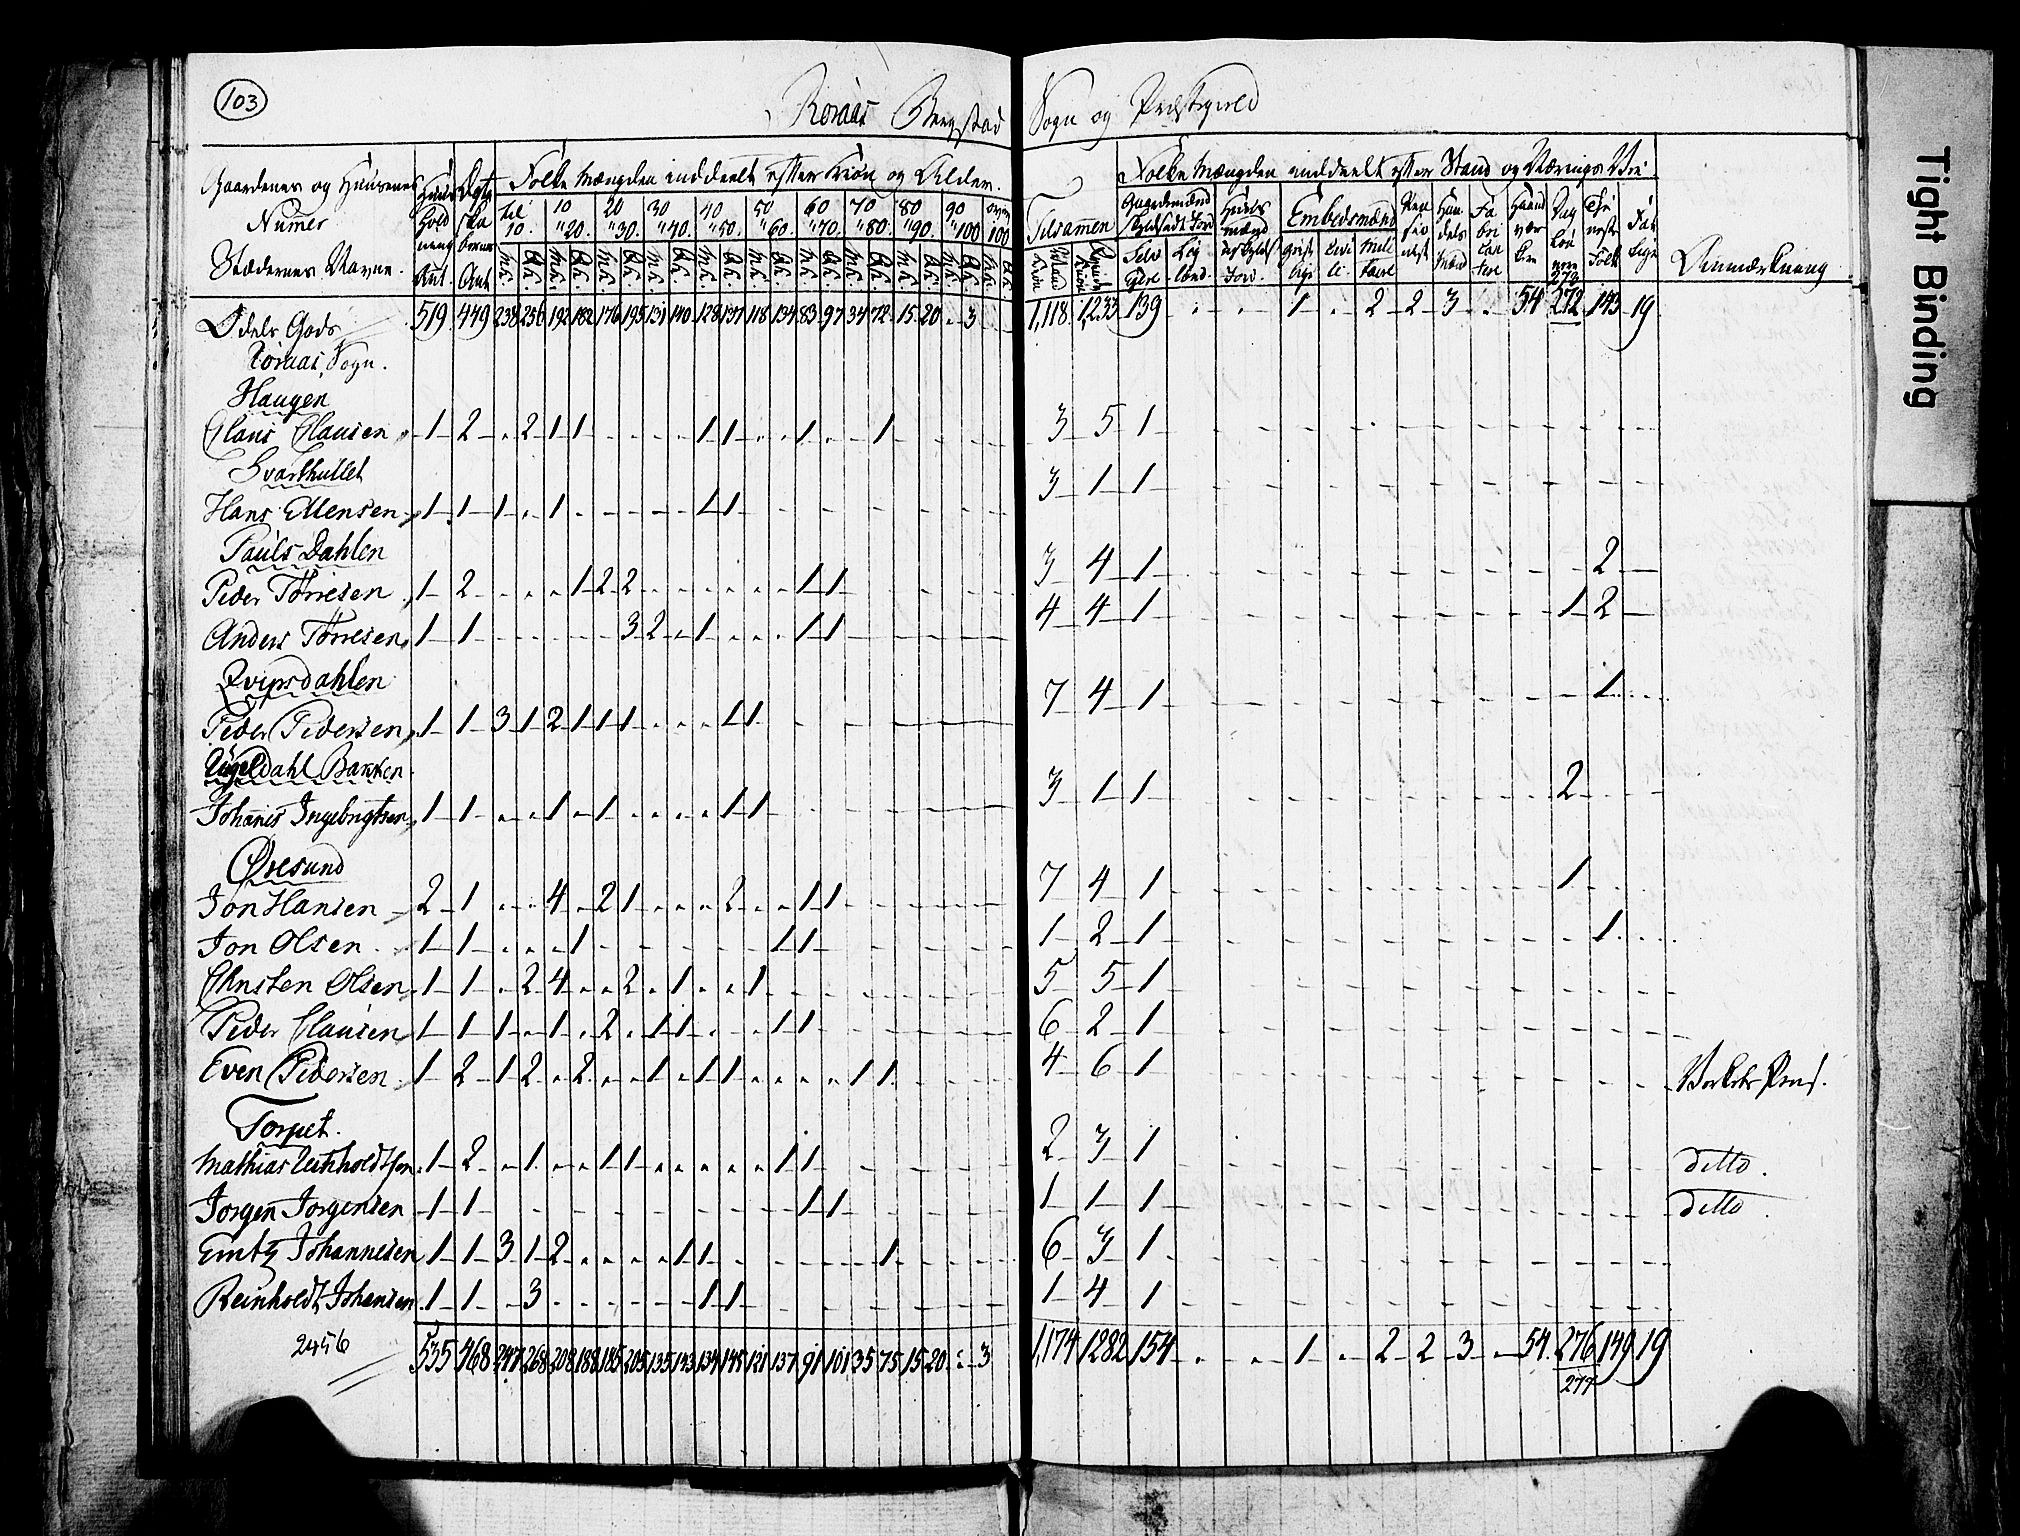 103
Roraas Bergstad Sogn og Præstegield
Gaardenes og Husenes Numer
Stædernes Navne.
Huus hold ning Ant.
Folke Mængden inddeelt efter Kiøn og Alder.
til 10. 10 "20. 20 "30. 30 "40. 40 "50. 50 "60. 60 "70. 70 "80. 80 "90. 90 "100 over 100
Tilsamen
Folke Mængden inddeelt efter Stand og Nærings Vei
Embedsmænd
Anmærkning
Odels Gods 519 449 238 256 192 182 176 195 131 140 128 137 118 134 83 97 34 72 15 20 . 3 1,118 1,233 139 . . 1 . 2 2 3 . 54 272 143 19
Roraas Sogn.
Haugen
Claus Clausen 1 2 . 2 1 1 . . . . 1 1 . . 1 . . 1 3 5 1
Svarthullet
Hans Ellensen 1 1 1 . 1 1 1 3 1 1
Pauls Dahlen
Peder Tørresen 1 2 . . . 1 2 2 1 1 3 4 1 2
Anders Tørresen 1 1 3 2 . 1 . . . 1 1 4 4 1 1 2
Qvipsdahlen
Peder Pedersen 1 1 3 1 2 1 1 1 . . . 1 1 7 4 1 1
Rugeldahl Bakken
Johanis Ingebrigtsen 1 1 . . 1 . 1 . . . . 1 1 3 1 1 2
Øresund
Jon Hansen 2 1 . . 4 . 2 1 . . . 2 . . 1 1 7 4 1 1
Jon Olsen 1 1 . . . 1 1 1 1 2 1 1
Christen Olsen 1 1 . 2 4 . . 2 . 1 . . 1 5 5 1
Peder Clausen 1 1 1 . 1 . 2 . 1 1 . . . 1 1 6 2 1
Even Pedersen 1 2 1 2 . 2 . . 1 . 1 1 . . . . 1 1 4 6 1
Torpet.
Mathias Reinholdtsen 1 2 . 1 . . 1 1 . . . . . 1 1 2 3 1 ditto.
Jørgen Jørgensen 1 1 1 1 1 1 1 ditto.
Entz Johannesen 1 1 3 1 2 . . . . 1 1 1 6 3 1
Reinholdt Johansen 1 1 . 3 1 1 1 4 1
2456 535 468 247 268 208 188 185 205 135 143 134 148 121 137 91 101 35 75 15 20 . 3 1,174 1282 154 . . 1 . 2 2 3 . 54 276 149 19
277
Tight Binding